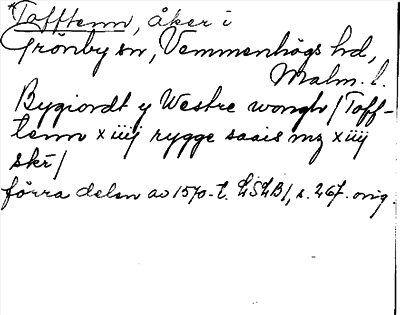 *Tofftenn, åker i
Grönby sn, Vemmenhögs hd,
Malm. l.
Bygiordt y Westre wongh / Toff-
tenn x iiij rygge saais mz x iiij
skr /
förra delen av 1570-t. LSLB 1, s. 267. orig.